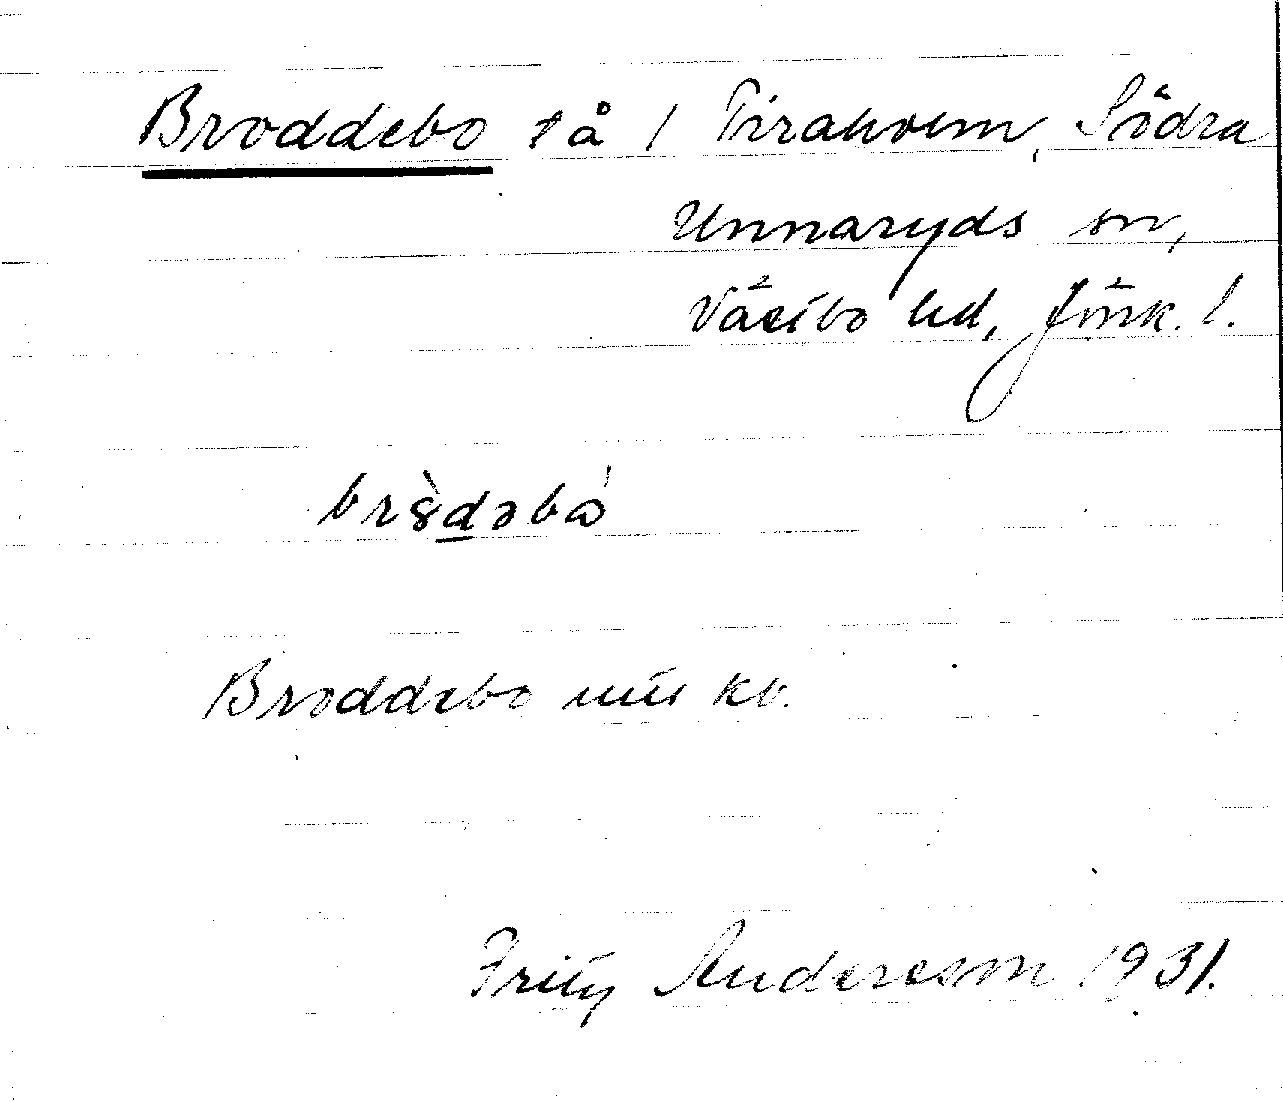 Broddebo på / Tiraholm, Södra
Unnaryds sn,
Västbo hd, Jönk. l.
Broddebo
Fritz Andersson 1931.